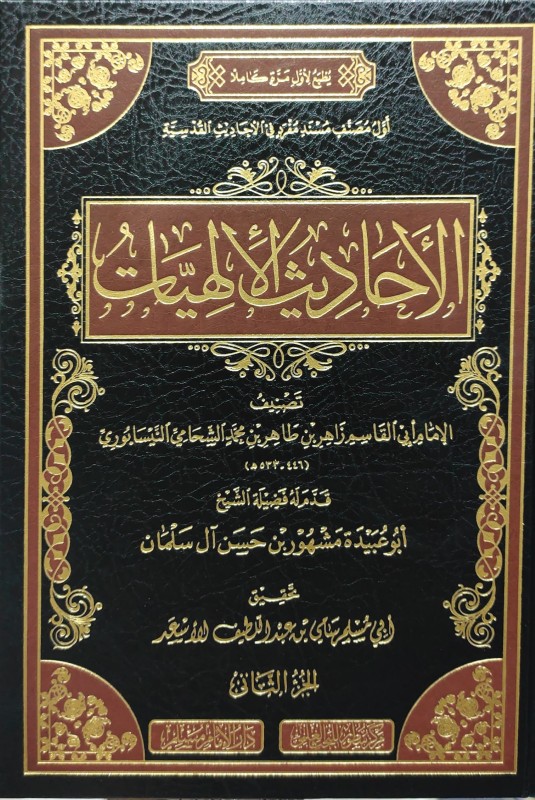 يطبع لأول مرة كاملا
أول مصنف مسند مفرد في الأحاديث القدسية
الأحاديث الألهيات
تصنيف
الإمام أبي القاسم زاهر بن طاهر بن محمد الشحامي النيسابوري
(٤٤٦ - ٥٣٣ هـ)
قدم له فضيلة الشيخ
أبو عبيدة مشهور بن حسن آل سلمان
تحقيق
أبي مسلم بن عبد اللطيف الأسعد
الجزء الثاني
دار الإمام مسلم